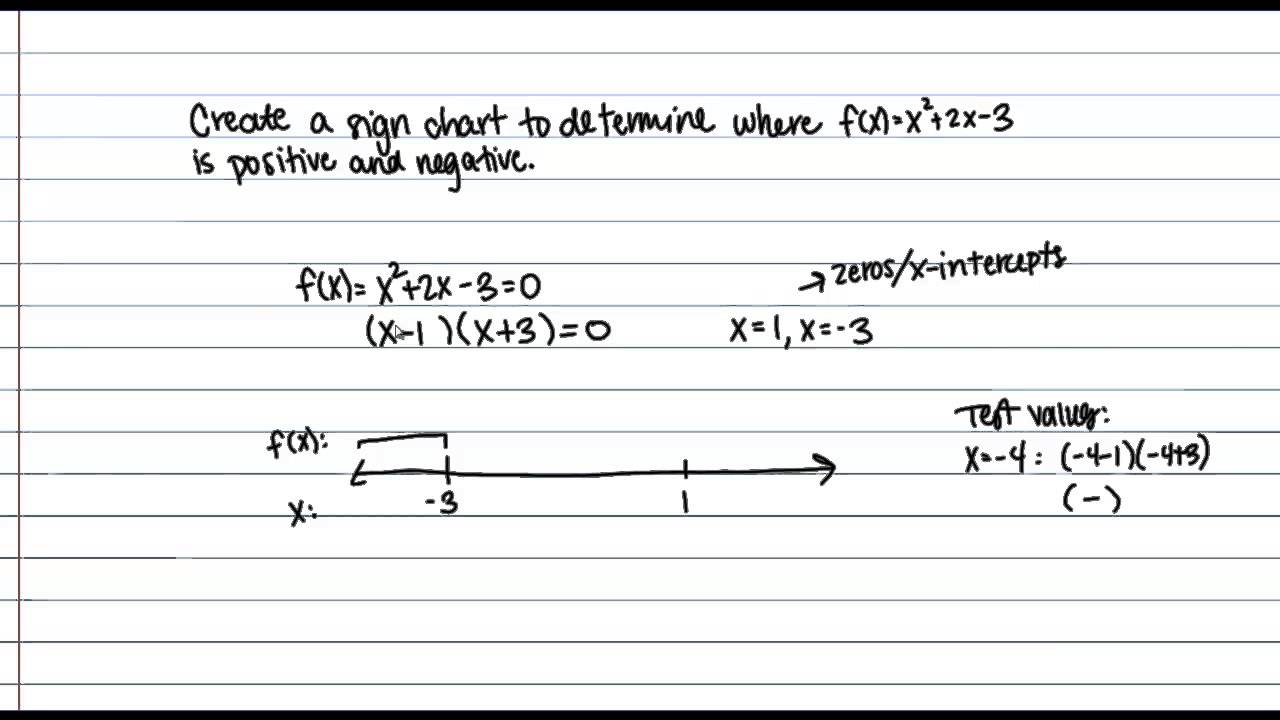 Create a sign chart to determine where f(x)=x²+2x-3
is positive and negative.
→ zeros/x-intercepts
f(x)= x²+2x-3=0
(x-1)(x+3)=0 x=1, x=-3
Test values:
f(x):
x=-4: (-4-1)(-4+3)
(-)
-3 1
x: